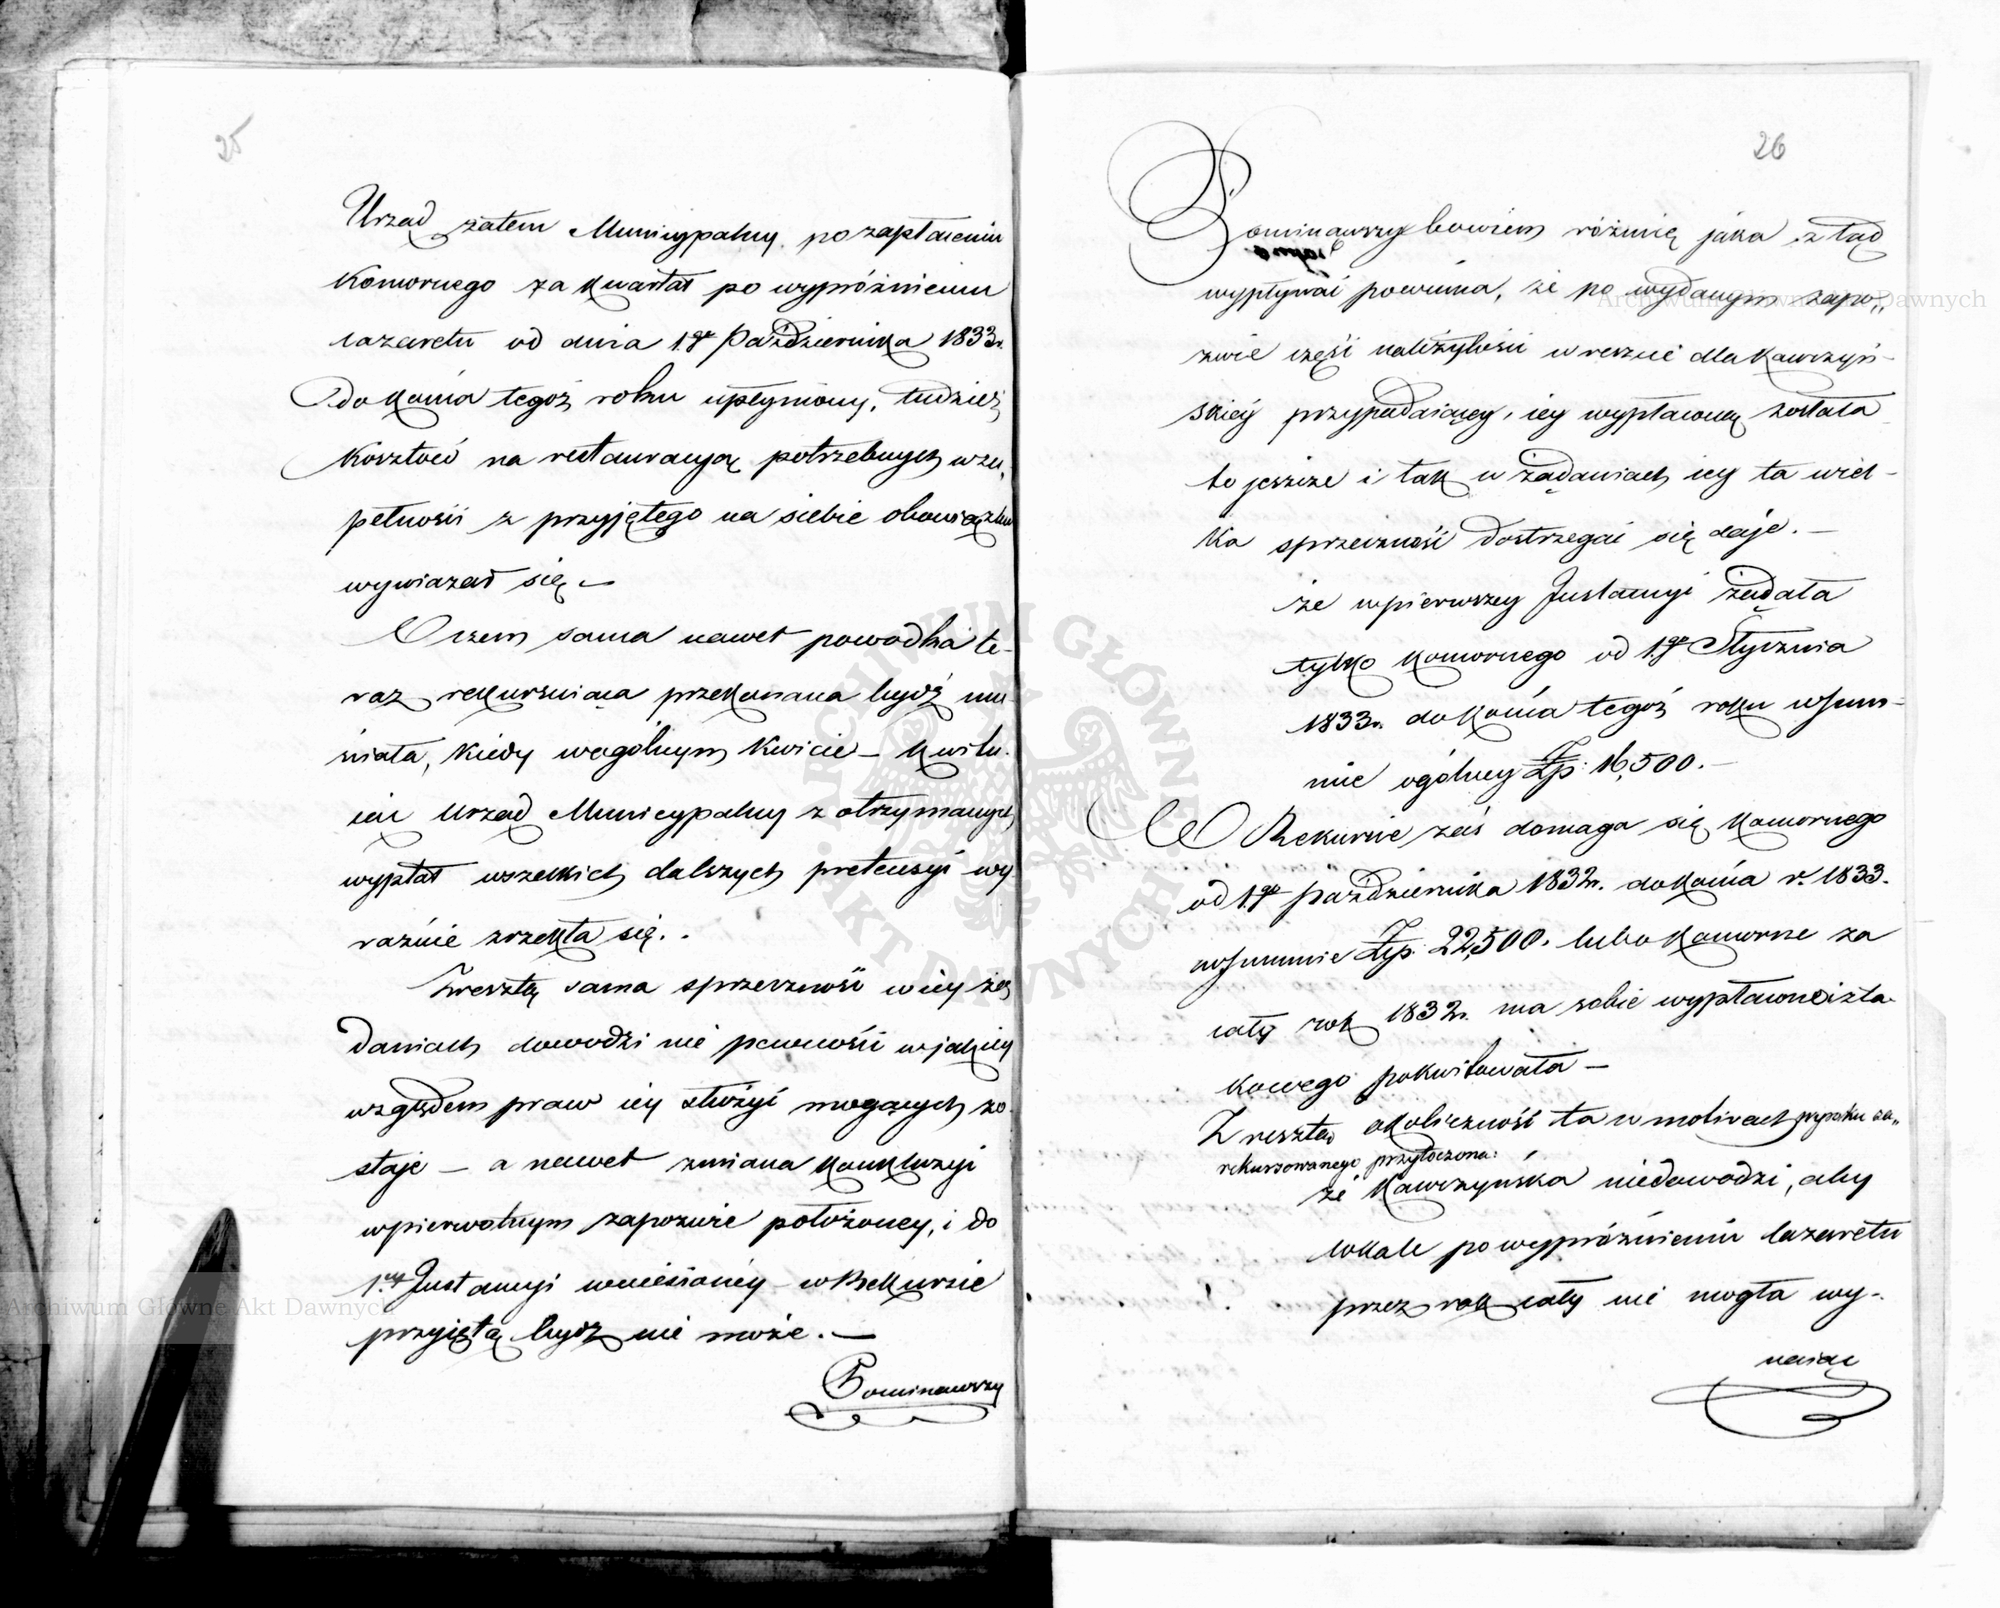 25
Urząd zatem Municypalny po zapłaceniu
Komornego za kwartał po wypróżnieniu
lazaretu od dnia 1go Października 1833r.
do końca tegoż roku upłyniony, tudzież
kosztów na restauracyą potrzebnych w zu„
pełności z przyjętego na siebie obowiązku
wywiązał się. —
O czem sama nawet powodka te-
raz rekursuiąca przekonana bydź mu-
siała, kiedy w ogólnym kwicie — kwitu-
iąc Urząd Municypalny z otrzymanych
wypłat wszelkich dalszych pretensyi wy
raźnie zrzekła się. .
Zresztą sama sprzeczność w iey żą
daniach dowodzi nie pewności w jakiey
względem praw iey służyć mogących zo-
staje — a nawet zmiana konkluzyi
w pierwotnym zapozwie położoney, i do
1ey Instancyi wniesioney — w Rekursie
przyiętą bydź nie może. —
Pominąwszy
26
Pominąwszy bowiem różnicę jaka ztąd
wypływać powinna, że po wydanym zapo„
zwie część należytości w reszcie dla Kawczyń-
skiey przypadaiącey, iey wypłaconą została
to jeszcze i tak w żądaniach iey ta wiel-
ka sprzeczność dostrzegać się daje. —
że w pierwszey Instancyi żądała
tylko komornego od 1go Stycznia
1833r. do końca tegoż roku w Sum-
mie ogólney Złp: 16,500. —
W Rekursie zaś domaga się komornego
od 1go Października 1832r. do końca r. 1833.
w Summie Złp. 22,500. lubo komorne za
cały rok 1832r. ma sobie wypłacone i z ta-
kowego pokwitowała —
Zresztą okoliczność ta w motivach wyroku za„
rekursowanego przytoczona:
że Kawczyńska niedowodzi, aby
lokale po wypróżnieniu lazaretu
przez rok cały nie mogła wy-.
naiąć
Archiwum Główne Akt Dawnych
Archiwum Główne Akt Dawnych
ARCHIWUM GŁÓWNE · AKT DAWNYCH ·